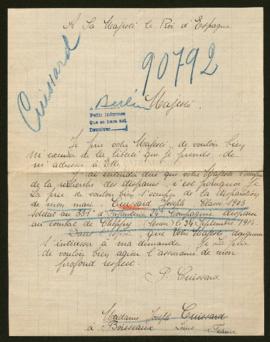 A Sa Majesté le Roi d'Espagne
Cuissard
90792
Berlin
Majesté.
Petit Informes
Que se hace sol.
Devolver
Je prie votre Majesté, de vouloir bien
m'excuser de la liberté que je prends, de
m'adresser à Elle.
J'ai entendu dire que votre Majesté s'occupe
de la recherche des disparus, c'est pourquoi Je
La prie de vouloir bien s'occuper de la disparition
de mon mari, Cuissard Joseph Classe 1903
soldat au 351e d'Infanterie 24e Compagnie disparu
au combat de Septembre 1914
Dans l'espoir que Votre Majesté daignera
s'intéresser à ma demande Je La prie
de vouloir bien agréer l'assurance de mon
profond respect.
Cuissard
Madame Joseph Cuissard
à France